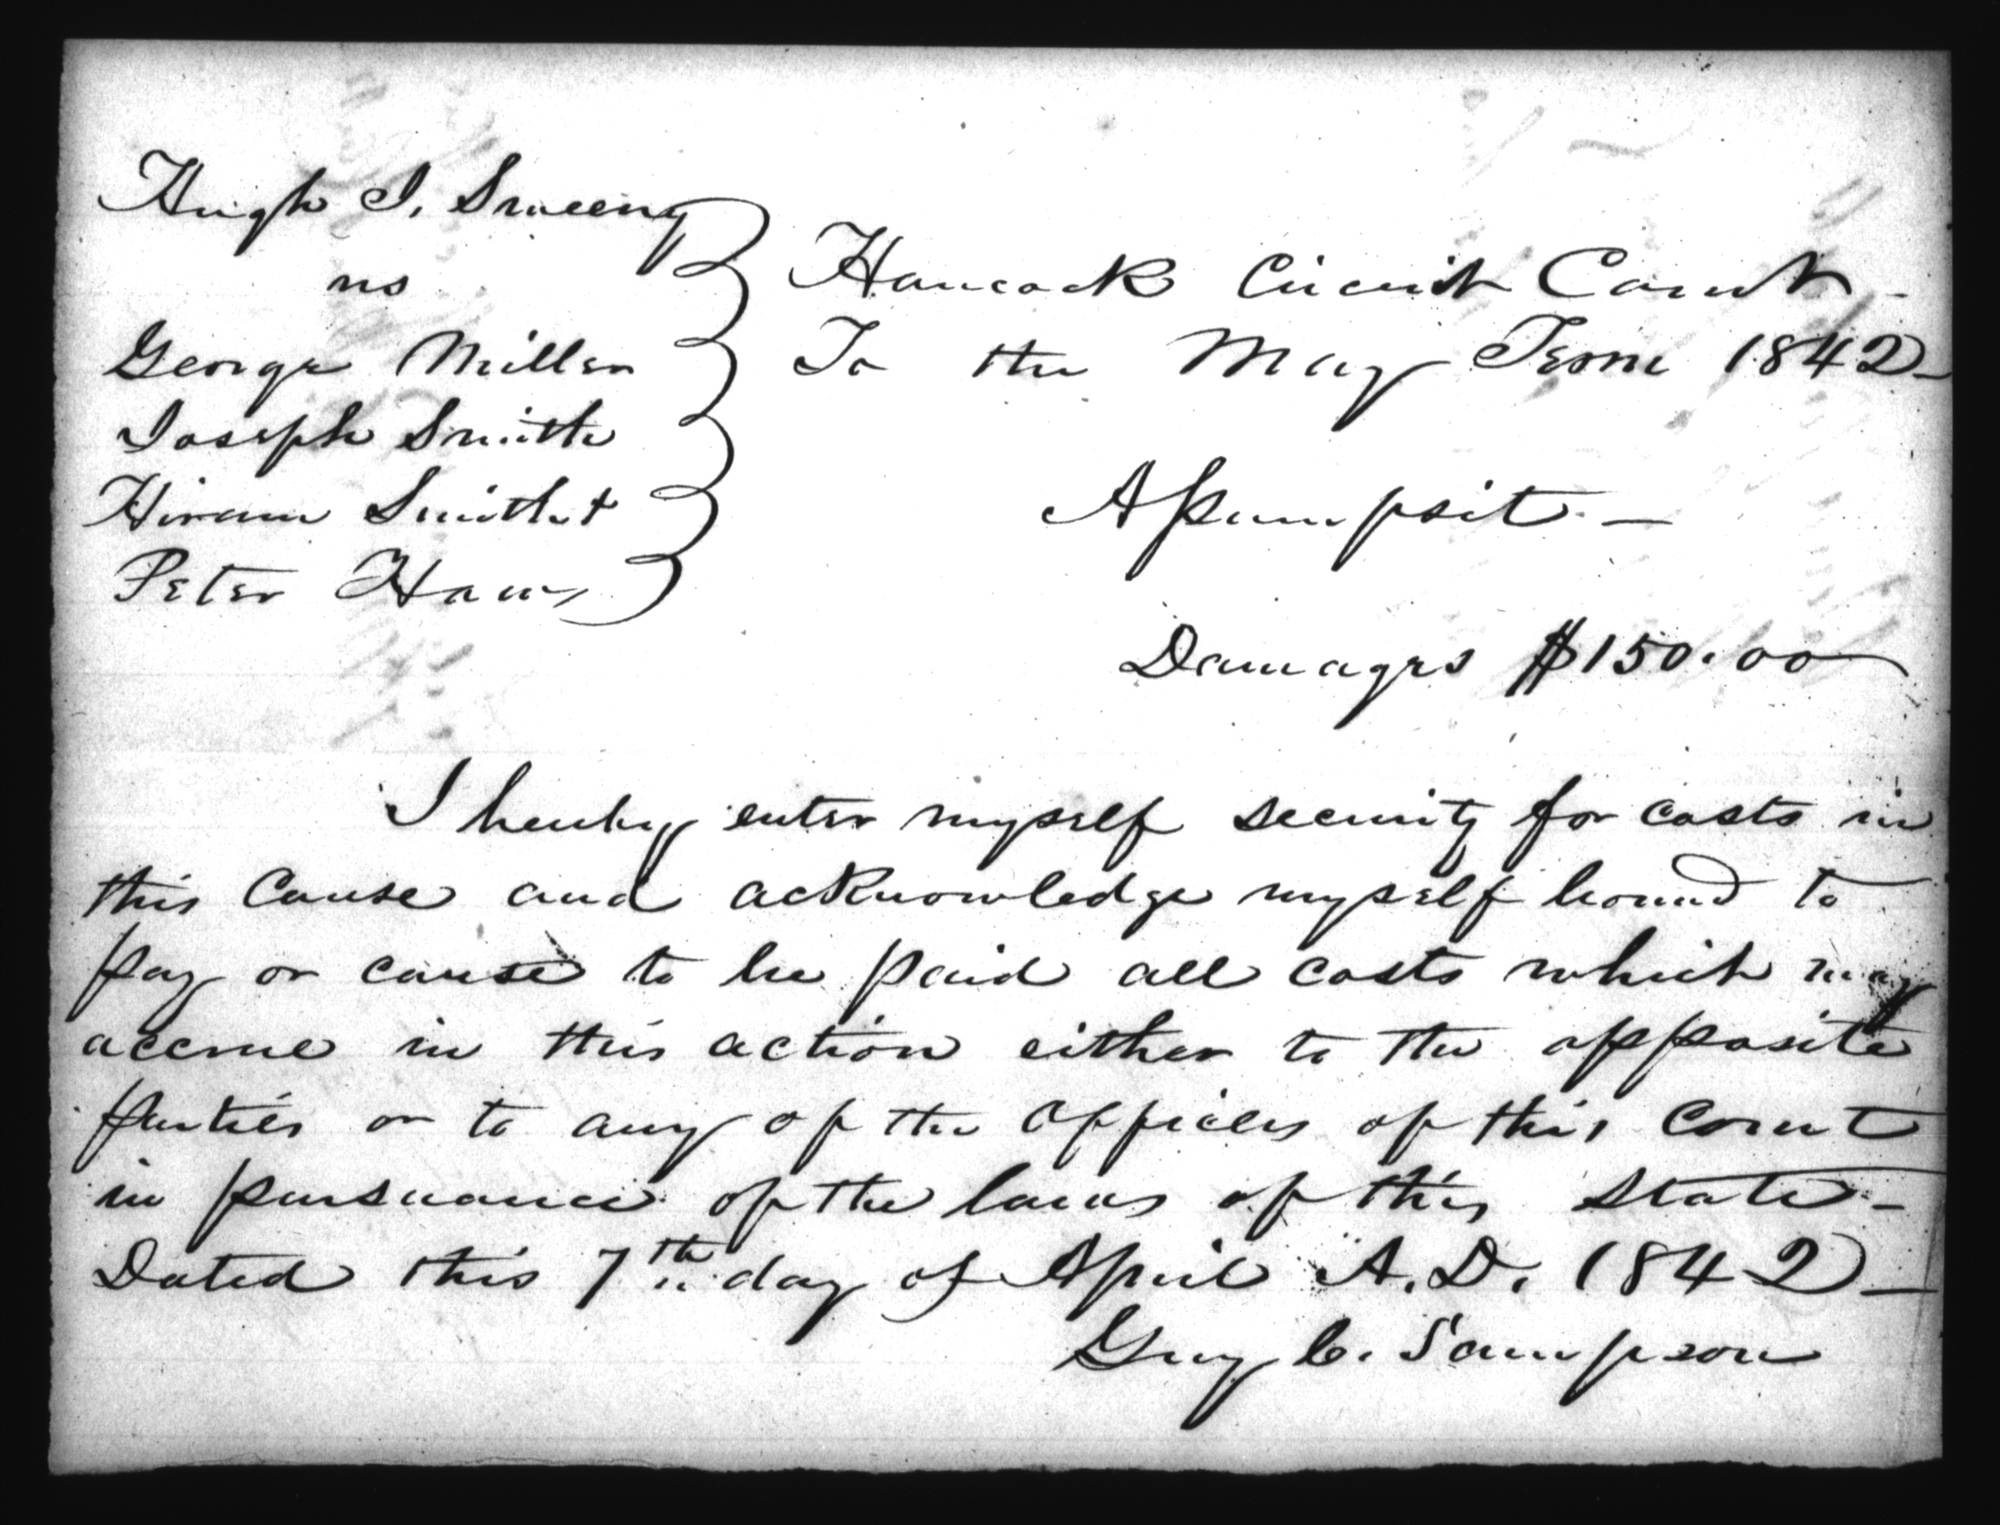 Hugh I. Sweeny
vs
George Miller
Joseph Smith
Hiram Smith &
Peter Haws
Hancock Circuit Court -
To the May Term 1842 -
Assumpsit -
Damages $150.00
I hereby enter myself security for costs in
this cause and acknowledge myself bound to
pay or cause to be paid all costs which may
accrue in this action either to the opposite
parties or to any of the officers of this Court
in pursuance of the laws of this State -
Dated this 7th day of April A.D. 1842 -
Guy C. Sampson